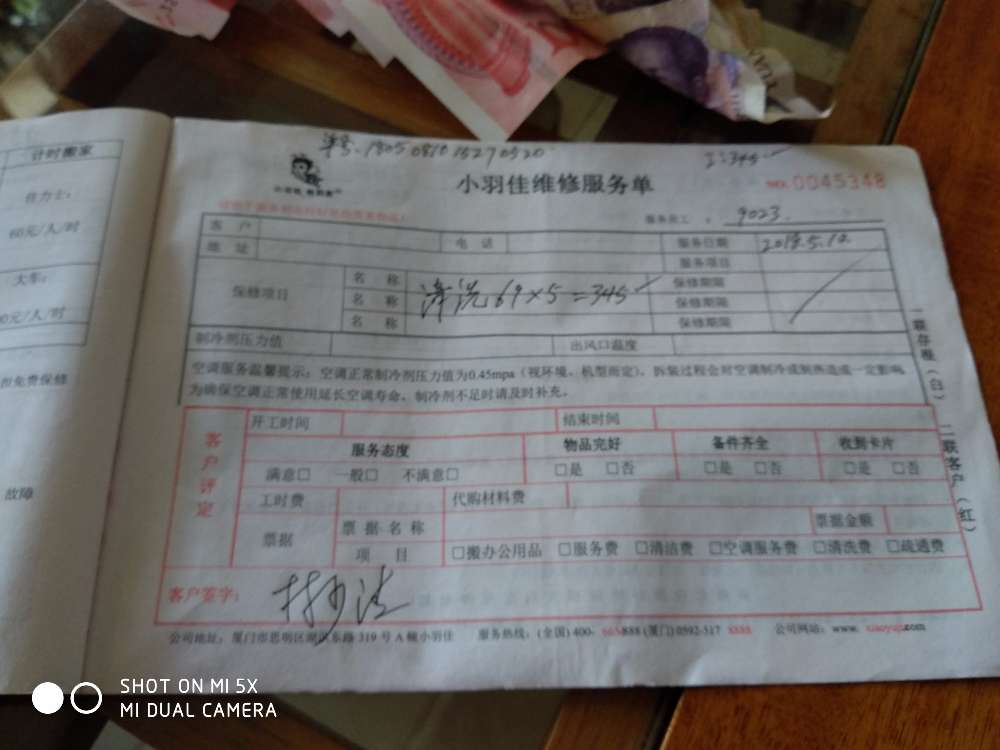 单号:1805081015270520
工:345
小羽佳维修服务单
NO.0045348
服务员工: 9023.
客户
地址 电话 服务日期 2018.5.12
服务项目
保修项目 名称 清洗 69×5=345 保修期限
名称 保修期限
名称 保修期限
制冷剂压力值 出风口温度
空调服务温馨提示:空调正常制冷剂压力值为0.45mpa(视环境、机型而定)。拆装过程会对空调制冷或制热造成一定影响,
为确保空调正常使用延长空调寿命,制冷剂不足时请及时补充。
一联存根(白) 二联客户(红)
客户评定
开工时间 结束时间
服务态度 物品完好 备件齐全 收到卡片
满意□ 一般□ 不满意□ □是 □否 □是 □否 □是 □否
工时费 代购材料费
票据 票据名称 票据金额
项目 □搬办公用品 □服务费 □清洁费 □空调服务费 □清洗费 □疏通费
客户签字:
公司地址:厦门市思明区湖滨东路 319 号 A 幢小羽佳 服务热线:(全国) 400-665888 (厦门) 0592-517 8888 公司网站:www. xiaoyujia.com
计时搬家
60元/人/时
大车:
0元/人/时
担免费保修
故障
SHOT ON MI 5X
MI DUAL CAMERA